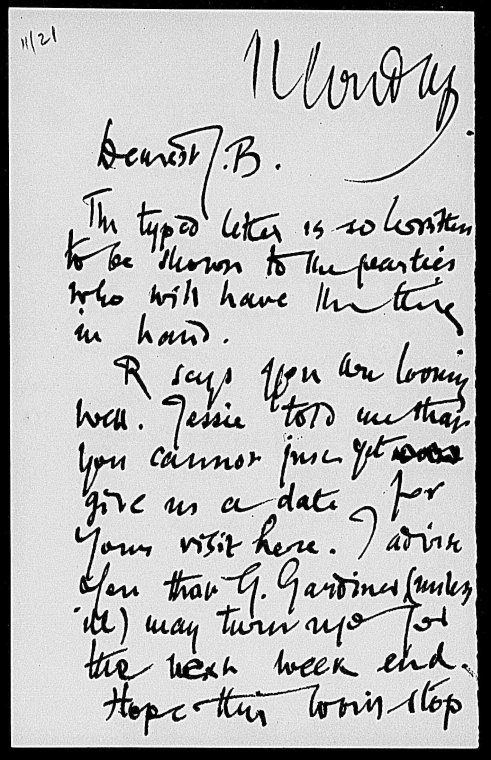 11/21
Monday.
Dearest J.B.
The typed letter is so written
to be shown to the parties
who will have the thing
in hand.
R says you are looking
well. Jessie told me that
you cannot just yet
give us a date for
your visit here. I advise
you that G. Gardiner (unless
ill) may turn up for
the next week end.
Hope this won't stop